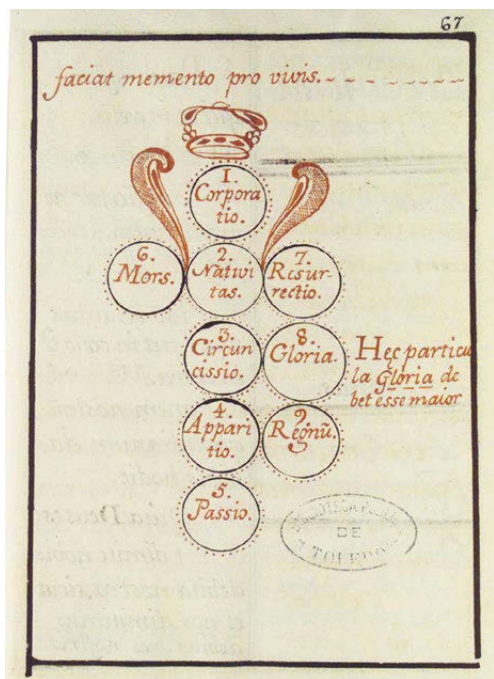 67
faciat memento pro vivis.
1.
Corpora
tio.
6.
Mors.
2.
Nativi
tas.
7.
Resur-
rectio.
3.
Circun
cissio.
8.
Gloria.
Hęc particu
la Gloria de
bet esse maior
4.
Appari
tio.
9.
Regnũ.
5.
Passio.
DE
TOLEDO